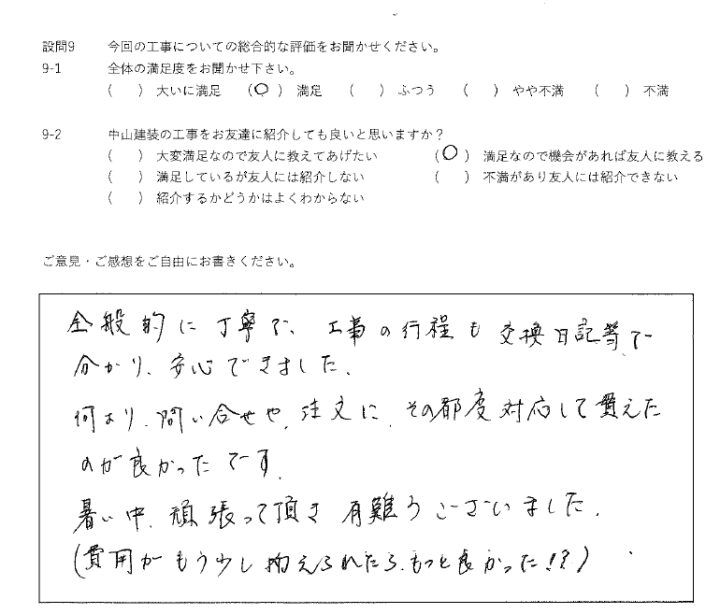 設問9 今回の工事についての総合的な評価をお聞かせください。
9-1 全体の満足度をお聞かせ下さい。
( ) 大いに満足 (○) 満足 ( ) ふつう ( ) やや不満 ( ) 不満
9-2 中山建装の工事をお友達に紹介しても良いと思いますか？
( ) 大変満足なので友人に教えてあげたい (○) 満足なので機会があれば友人に教える
( ) 満足しているが友人には紹介しない ( ) 不満があり友人には紹介できない
( ) 紹介するかどうかはよくわからない
ご意見・ご感想をご自由にお書きください。
全般的に丁寧で、工事の行程も交換日記等で
分かり、安心できました。
何より、問い合せや、注文に、その都度対応して貰えた
のが良かったです。
暑い中、頑張って頂き有難うございました。
(費用がもう少し抑えられたら、もっと良かった!?)